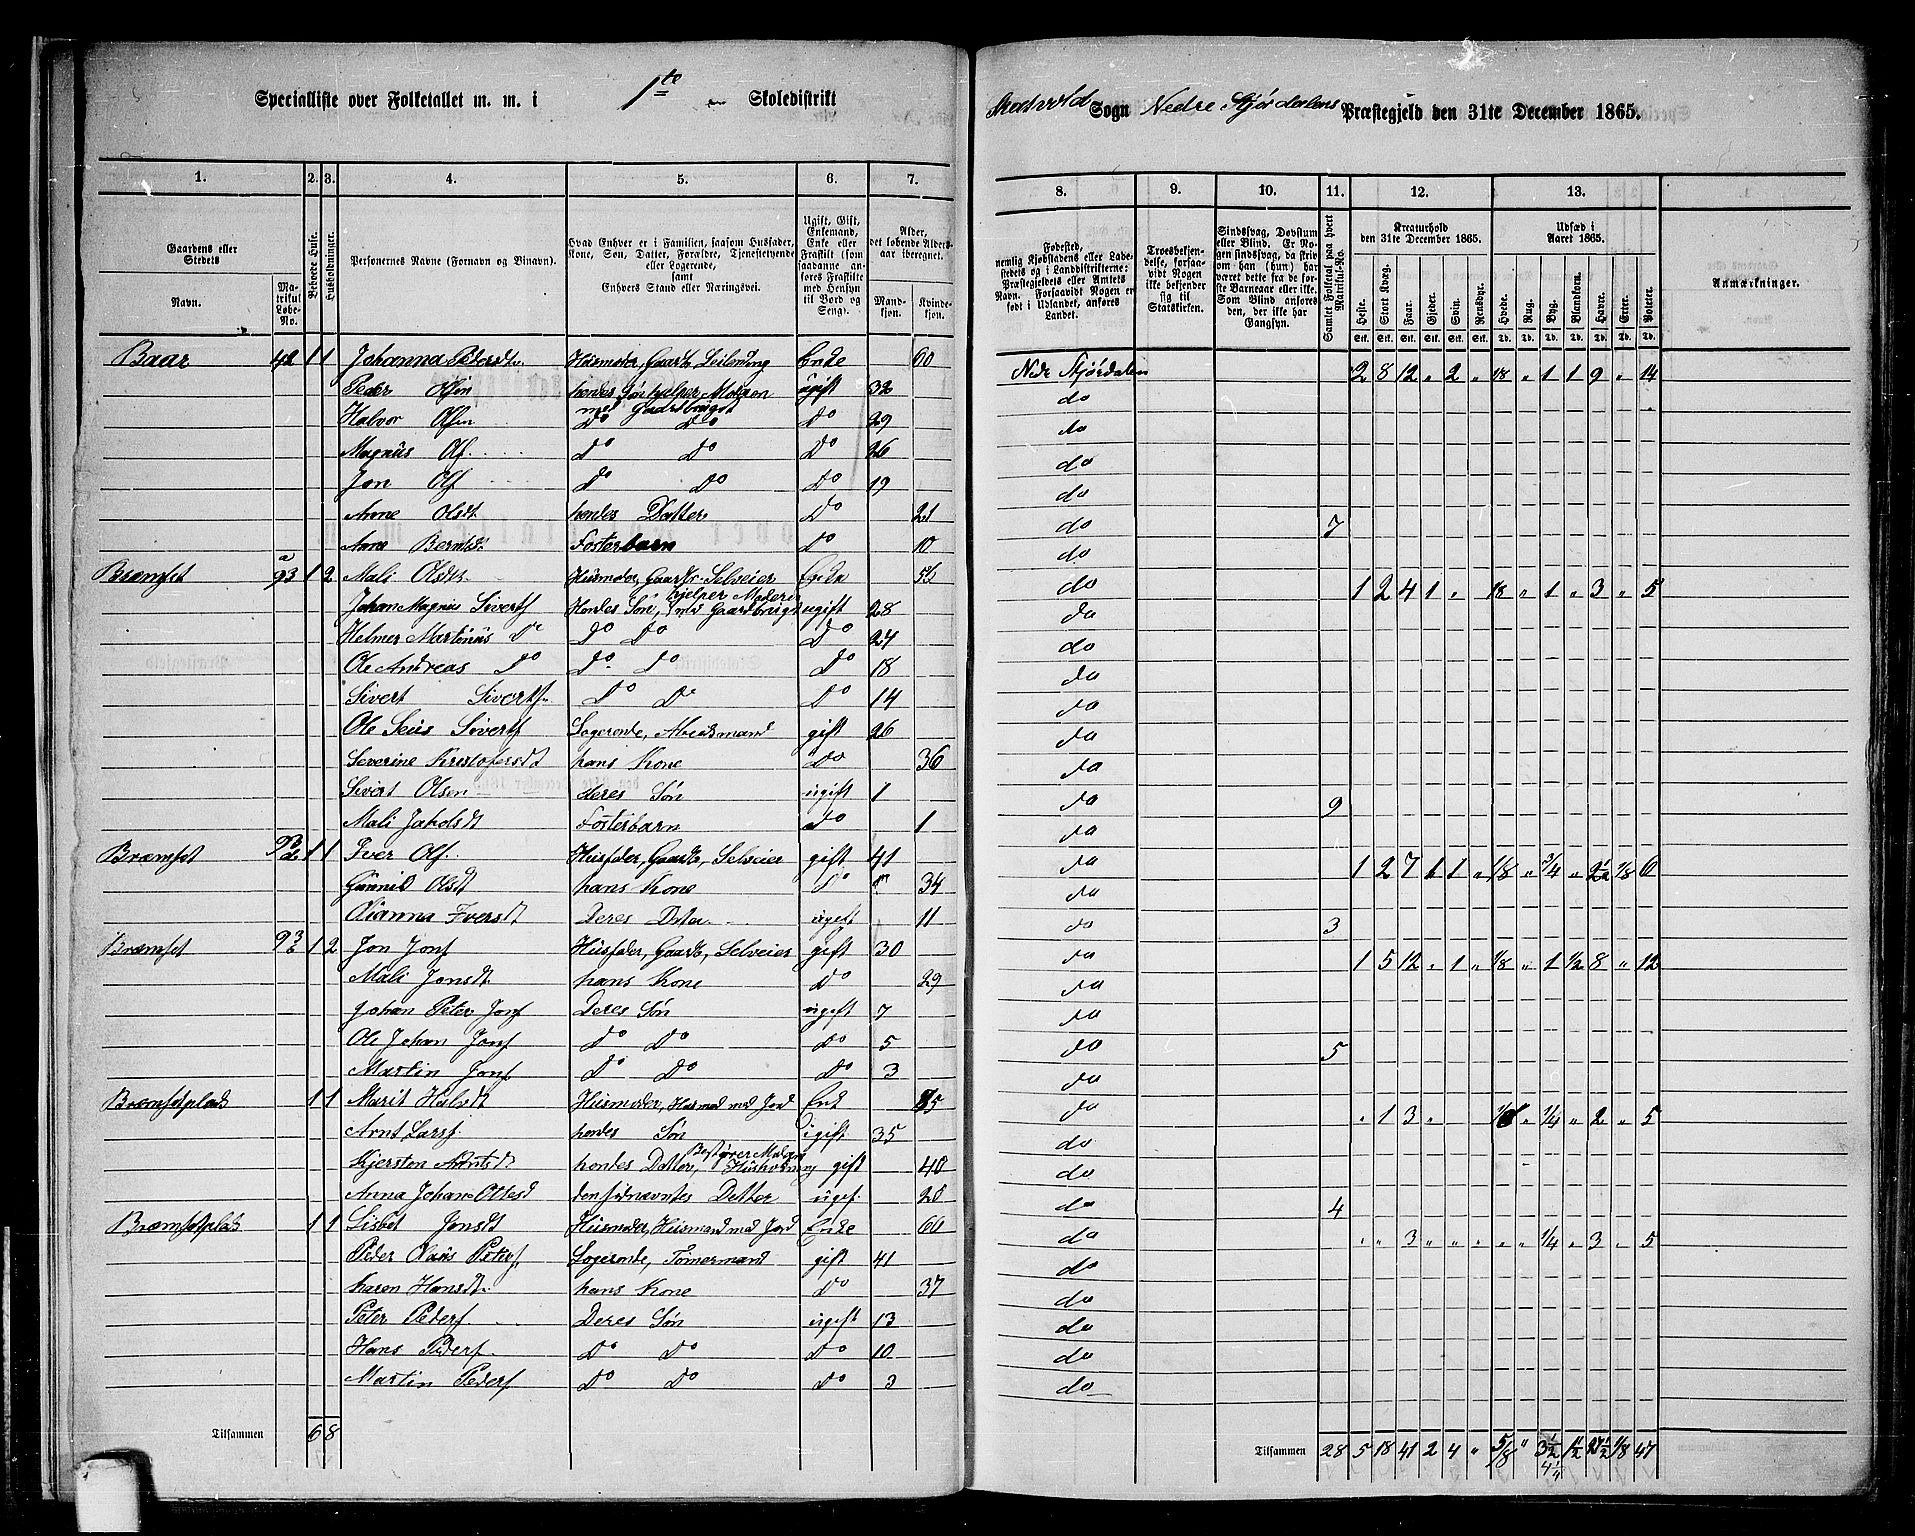 Specialliste over Folketallet m. m. i 1te Skoledistrikt
Skatvold Sogn Nedre Stjørdalens Præstegjeld den 31te December 1865.
1. 2. 3. 4. 5. 6. 7.
8. 9. 10. 11. 12. 13.
Gaardens eller Stedets
Navn.
Matrikul Løbe-No.
Beboede Huse.
Husholdninger.
Personernes Navne (Fornavn og Tilnavn).
Hvad Enhver er i Familien, saasom Husfader, Kone, Søn, Datter, Forældre, Tjenestetyende eller Logerende, samt Enhvers Stand eller Næringsvei.
Ugift, Gift, Enkemand, Enke eller Fraskilt (som saadanne anføres Fraskilte med Hensyn til Bord og Seng).
Alder, det løbende Alders-aar iberegnet.
Mandkjøn. Kvindekjøn.
Fødested, nemlig Kjøbstadens eller Ladestedets og i Landdistrikterne: Præstegjeldets eller Amtets Navn. Forsaavidt Nogen er født i Udlandet, anføres Landet.
Troesbekjendelse, forsaavidt Nogen ikke bekjender sig til Statskirken.
Sindssvag, Døvstum eller Blind. Er Nogen sindssvag, da skriv om han (hun) har været dette fra de første Barneaar eller ikke. Som Blind anføres den, der ikke har Gangsyn.
Samlet Folketal paa hvert Matrikul-No.
Kreaturhold den 31te December 1865.
Heste. Stort Kvæg. Faar. Gjeder. Svin. Rensdyr.
Udsæd i Aaret 1865.
Hvede. Rug. Byg. Blandkorn. Havre. Erter. Poteter.
Anmærkninger.
Baar 42 1 1 Johanna Pedersdt. Husmoder, Gaardb. Leilending Enke 60 Nedr Stjørdalen 2 8 12 „ 2 „ 1/8 „ 1 1 9 „ 14
Peder Olsen hendes Søn hjelper Moderen med Gaardsbruget ugift 32 do
Halvor Olsen Do Do Do 29 do
Magnus Ols. Do Do Do 26 do
Jon Ols. Do Do Do 19 do
Anne Olsdt. hendes Datter Do 21 do 7
Anne Berntsdt. Fosterbarn Do 10 do
Bremset 93 a 1 2 Mali Olsdt. Husmoder, Gaardbr. Selveier Enke 56 do 1 2 4 1 „ 1/8 „ 1 „ 3 „ 5
Johan Magnus Sivertss. Hendes Søn, hjelper Moderen md Gaardsbruget ugift 28 do
Helmer Martinus Do Do Do Do 24 do
Ole Andreas Do Do Do Do 18 do
Sivert Sivertss. Do Do Do 14 do
Ole Seius Sivertss. Logerende, Abeidsmand gift 26 do
Severine Kristofersdt hans Kone Do 36 do
Sivert Olsen deres Søn ugift 1 do 9
Mali Jakobsdt Fosterbarn Do 1 do
Bremset 93 1 1 Iver Ols. Husfader, Gaardb, Selveier gift 41 do 1 2 7 1 1 „ 1/8 „ 3/4 „ 2 1/2 1/8 6
Gunnild Olsdt hans Kone Do 34 do
Olianna Iversdt Deres Datter ugift 11 do 3
Bremset 93 b 1 2 Jon Jonss. Husfader, Gaardb, Selveier gift 30 do 1 5 12 „ 1 „ 1/8 „ 1 1/2 8 „ 12
Mali Jonsdt. hans Kone Do 29 do
Johan Peter Jonss. Deres Søn ugift 7 do
Ole Johan Jonss. Do Do Do 5 do 5
Martin Jonss. Do Do Do 3 do
Bremsetplads 1 1 Marit Halvdt Husmoder, Husmand med Jord Enk 75 do „ 1 3 „ „ 1/4 „ 2 „ 5
Arnt Larss. hendes Søn ugift 35 do
Kjersten Arntsdt hendes Datter, Bestyrer Moderens Husholdning gift 40 do
Anna Johan Ottesd den sidnævntes Datter ugif. 20 do 4
Bremsetplads 1 1 Lisbet Jonsdt Husmoder, Husmand med Jord Enke 60 do „ „ 3 „ „ „ „ „ 1/4 „ 3 „ 5
Peder Claus Peterss. Logerende, Tømermand gift 41 do
Karen Hansdt. hans Kone Do 37 do
Peter Pederss. Deres Søn ugift 13 do
Hans Pederss. Do Do Do 10 do
Martin Pederss. Do Do Do 3 do
Tilsammen 6 8
Tilsammen 28 5 18 41 2 4 „ 5/8 „ 3 1/2 1 1/2 27 1/2 1/8 47
4 1/4